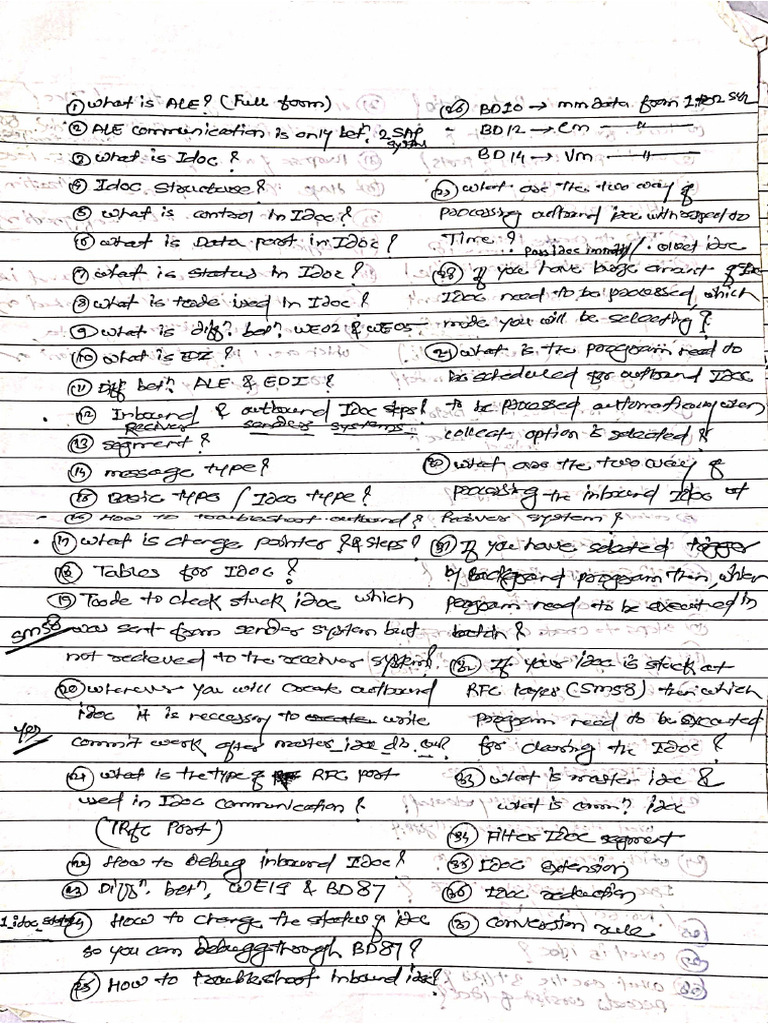 ① What is ALE? (Full form)
② ALE communication is only betn. 2 SAP systems
③ What is Idoc?
④ Idoc structure?
⑤ What is control in Idoc?
⑥ What is Data part in Idoc?
⑦ What is status in Idoc?
⑧ What is tcode used in Idoc?
⑨ What is diffn. betn. WE02 & WE05
⑩ What is EDI?
⑪ Diff betn. ALE & EDI?
⑫ Inbound & outbound Idoc steps?
Reciver sender systems
⑬ segment?
⑭ message type?
⑮ Basic types / Idoc type?
⑯ How to troubleshoot outbound?
⑰ What is change pointer? & steps?
⑱ Tables for Idoc?
⑲ Tcode to check stuck idoc which
SM58 was sent from sender system but
not recieved to the receiver system?
⑳ Whenever you will create outbound
idoc it is neccessary to write
yes commit work after master_idoc_dis.
㉑ What is the type of RFC port
used in Idoc communication?
(TRfc Port)
㉒ How to Debug inbound Idoc?
㉓ Diffn. betn, WE19 & BD87
㉔ How to change the status of idoc
so you can Debugg through BD87?
㉕ How to troubleshoot Inbound idoc?
㉖ BD10 → mm data from 1 to 2 sys
- BD12 → cm — " —
BD14 → Vm — " —
㉗ What are the two way of
processing outbound idoc with regard to
Time? Pass idoc immdty / collect idoc
㉘ If you have large amount of Idoc
Idoc need to be processed, which
mode you will be selecting?
㉙ What is the program need to
be scheduled for outbound Idoc
to be processed automatically when
collect option is selected?
㉚ What are the two way of
processing the inbound Idoc at
Reciver system?
㉛ If you have selected trigger
by Background program then, which
program need to be executed in
batch?
㉜ If your idoc is stuck at
RFC layer (SM58) then which
program need to be executed
for clearing the Idoc?
㉝ What is master idoc &
what is comn? idoc
㉞ Filter Idoc segment
㉟ Idoc extension
㊱ Idoc reduction
㊲ conversion rule